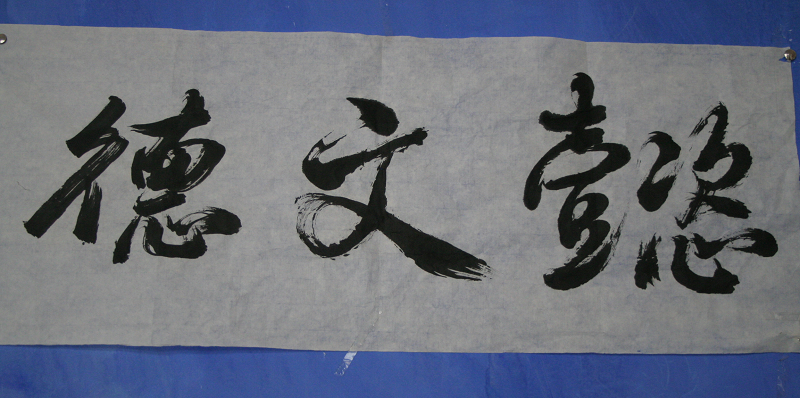 懿文德